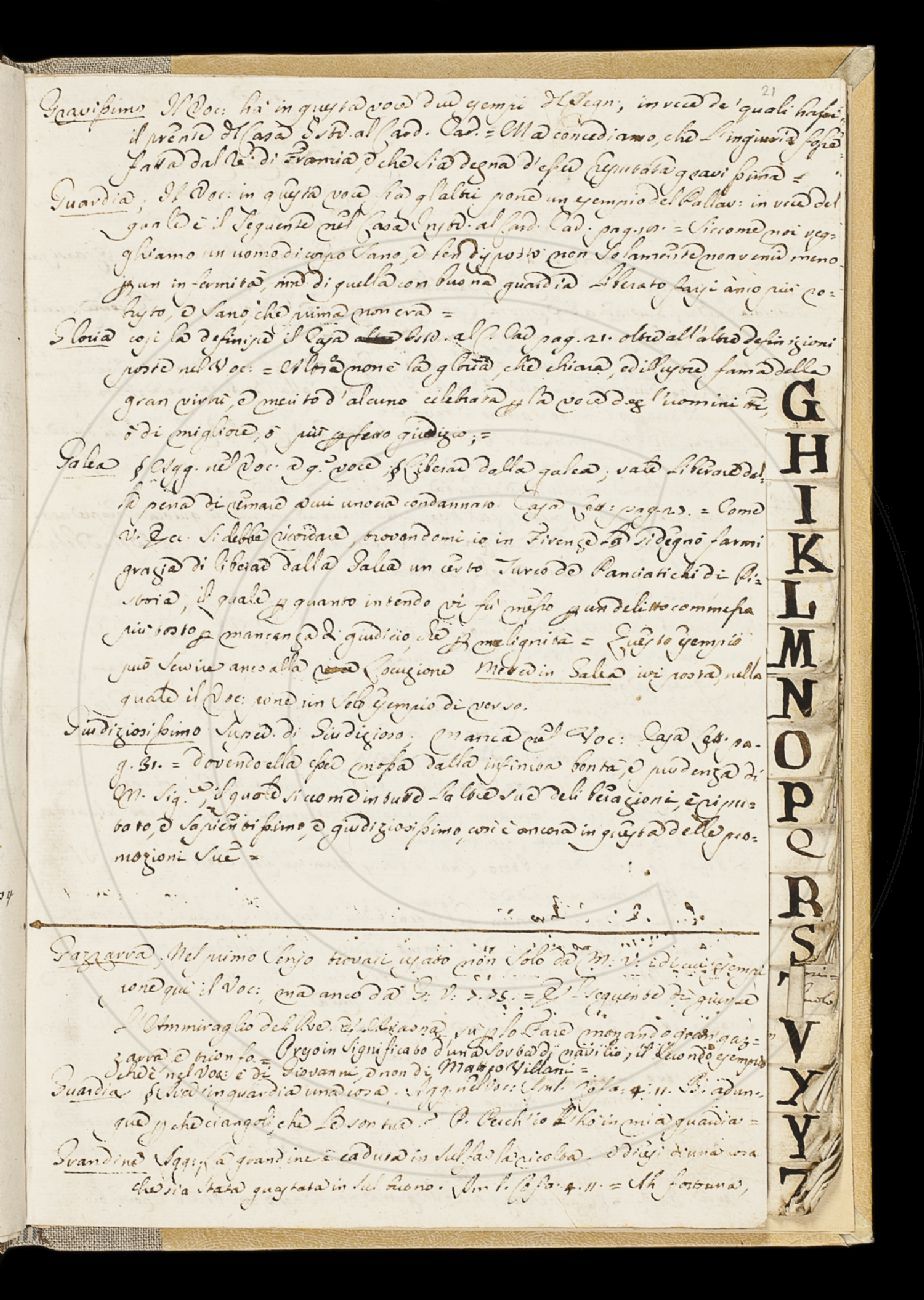 21
Gravissimo Il Voc: ha in questa voce due esempi del Segn:, in vece de' quali
il presente del Casa Istr. al Card. Caraf. = Ma concediamo, che l'ingiuria fosse
fatta dal Re di Francia, e che sia degna d'esser reputata gravissima =
Guardia, Il Voc: in questa voce fra gl'altri pone un esempio del Pallav: in vece del
quale è il seguente nel Casa Instr. al Card. Caraf. pag. = Siccome noi veg-
ghiamo un uomo di corpo sano, e ben disposto non solamente non venir meno
p un infermità, ma di quella con buona guardia liberato farsi anco più ro-
busto, e sano, che prima non era =
Gloria così la definisce il Casa Istr. al C. Caraf pag. 21. oltre all'altre definizioni
poste nel Voc: = Altro non è la gloria, che chiara, ed illustre fama delle
gran virtù, e merito d'alcuno celebrata p la voce degl'uomini
o di migliore, o più p fetto giudizio; =
Galea § Agg. nel Voc: a q.a voce § Liberar dalla galea; vale Liberare dal-
la pena di remare a cui uno era condannato. Casa Lett: pag. 23. = Come
V. Ecc. si debbe ricordare, trovandomi io in Firenze si degnò farmi
grazia di liberar dalla Galea un certo Turco de Panciatichi di Pi-
stoia, il quale p quanto intendo vi fu messo p un delitto commesso
più tosto p mancanza di giudicio, che p malignità = Questo esempio
può servire anco alla Locuzione Mettere in Galea ivi posta, nella
quale il Voc: pone un solo esempio di verso.
Giudiziosissimo Superl. di Giudizioso; manca nel Voc: Casa Lett. pa-
g. 31. = dovendo ella esser mossa dalla infinita bontà, e prudenza di
N. Sig.re, il quale siccome in tutte l'altre sue deliberazioni, è ripu-
tato, e sapientissimo, e giudiziosissimo, così è ancora in questa delle pro-
mozioni sue =
Gazzarra. Nel primo senso trovasi usato non solo da M. V. esempi
pone qui il Voc:, ma anco da G. V. 7. 75. = E 'l seguente dì giunse
L'Ammiraglio del Re su p lo Fare menando gran gaz-
zarra e trionfo = Preso in significato d'una sorta di navilio, il secondo esempio
che è nel Voc: è di Giovanni, e non di Matteo Villani =
Guardia § Aver in guardia una cosa. Agg. nel Voc: Ant. Alam. 4. 11. B. adun-
que p che ciangoli, che le son tue? P. Perch'io l'ho in mia guardia =
Grandine Agg: La grandine è caduta in sul far la ricolta. e dicesi di una cosa
che sia stata guastata in sul buono. Ant. Alam. 4. 11. = Ah fortuna,
G
H
I
K
L
M
N
O
P
Q
R
S
T
V
X
Y
Z